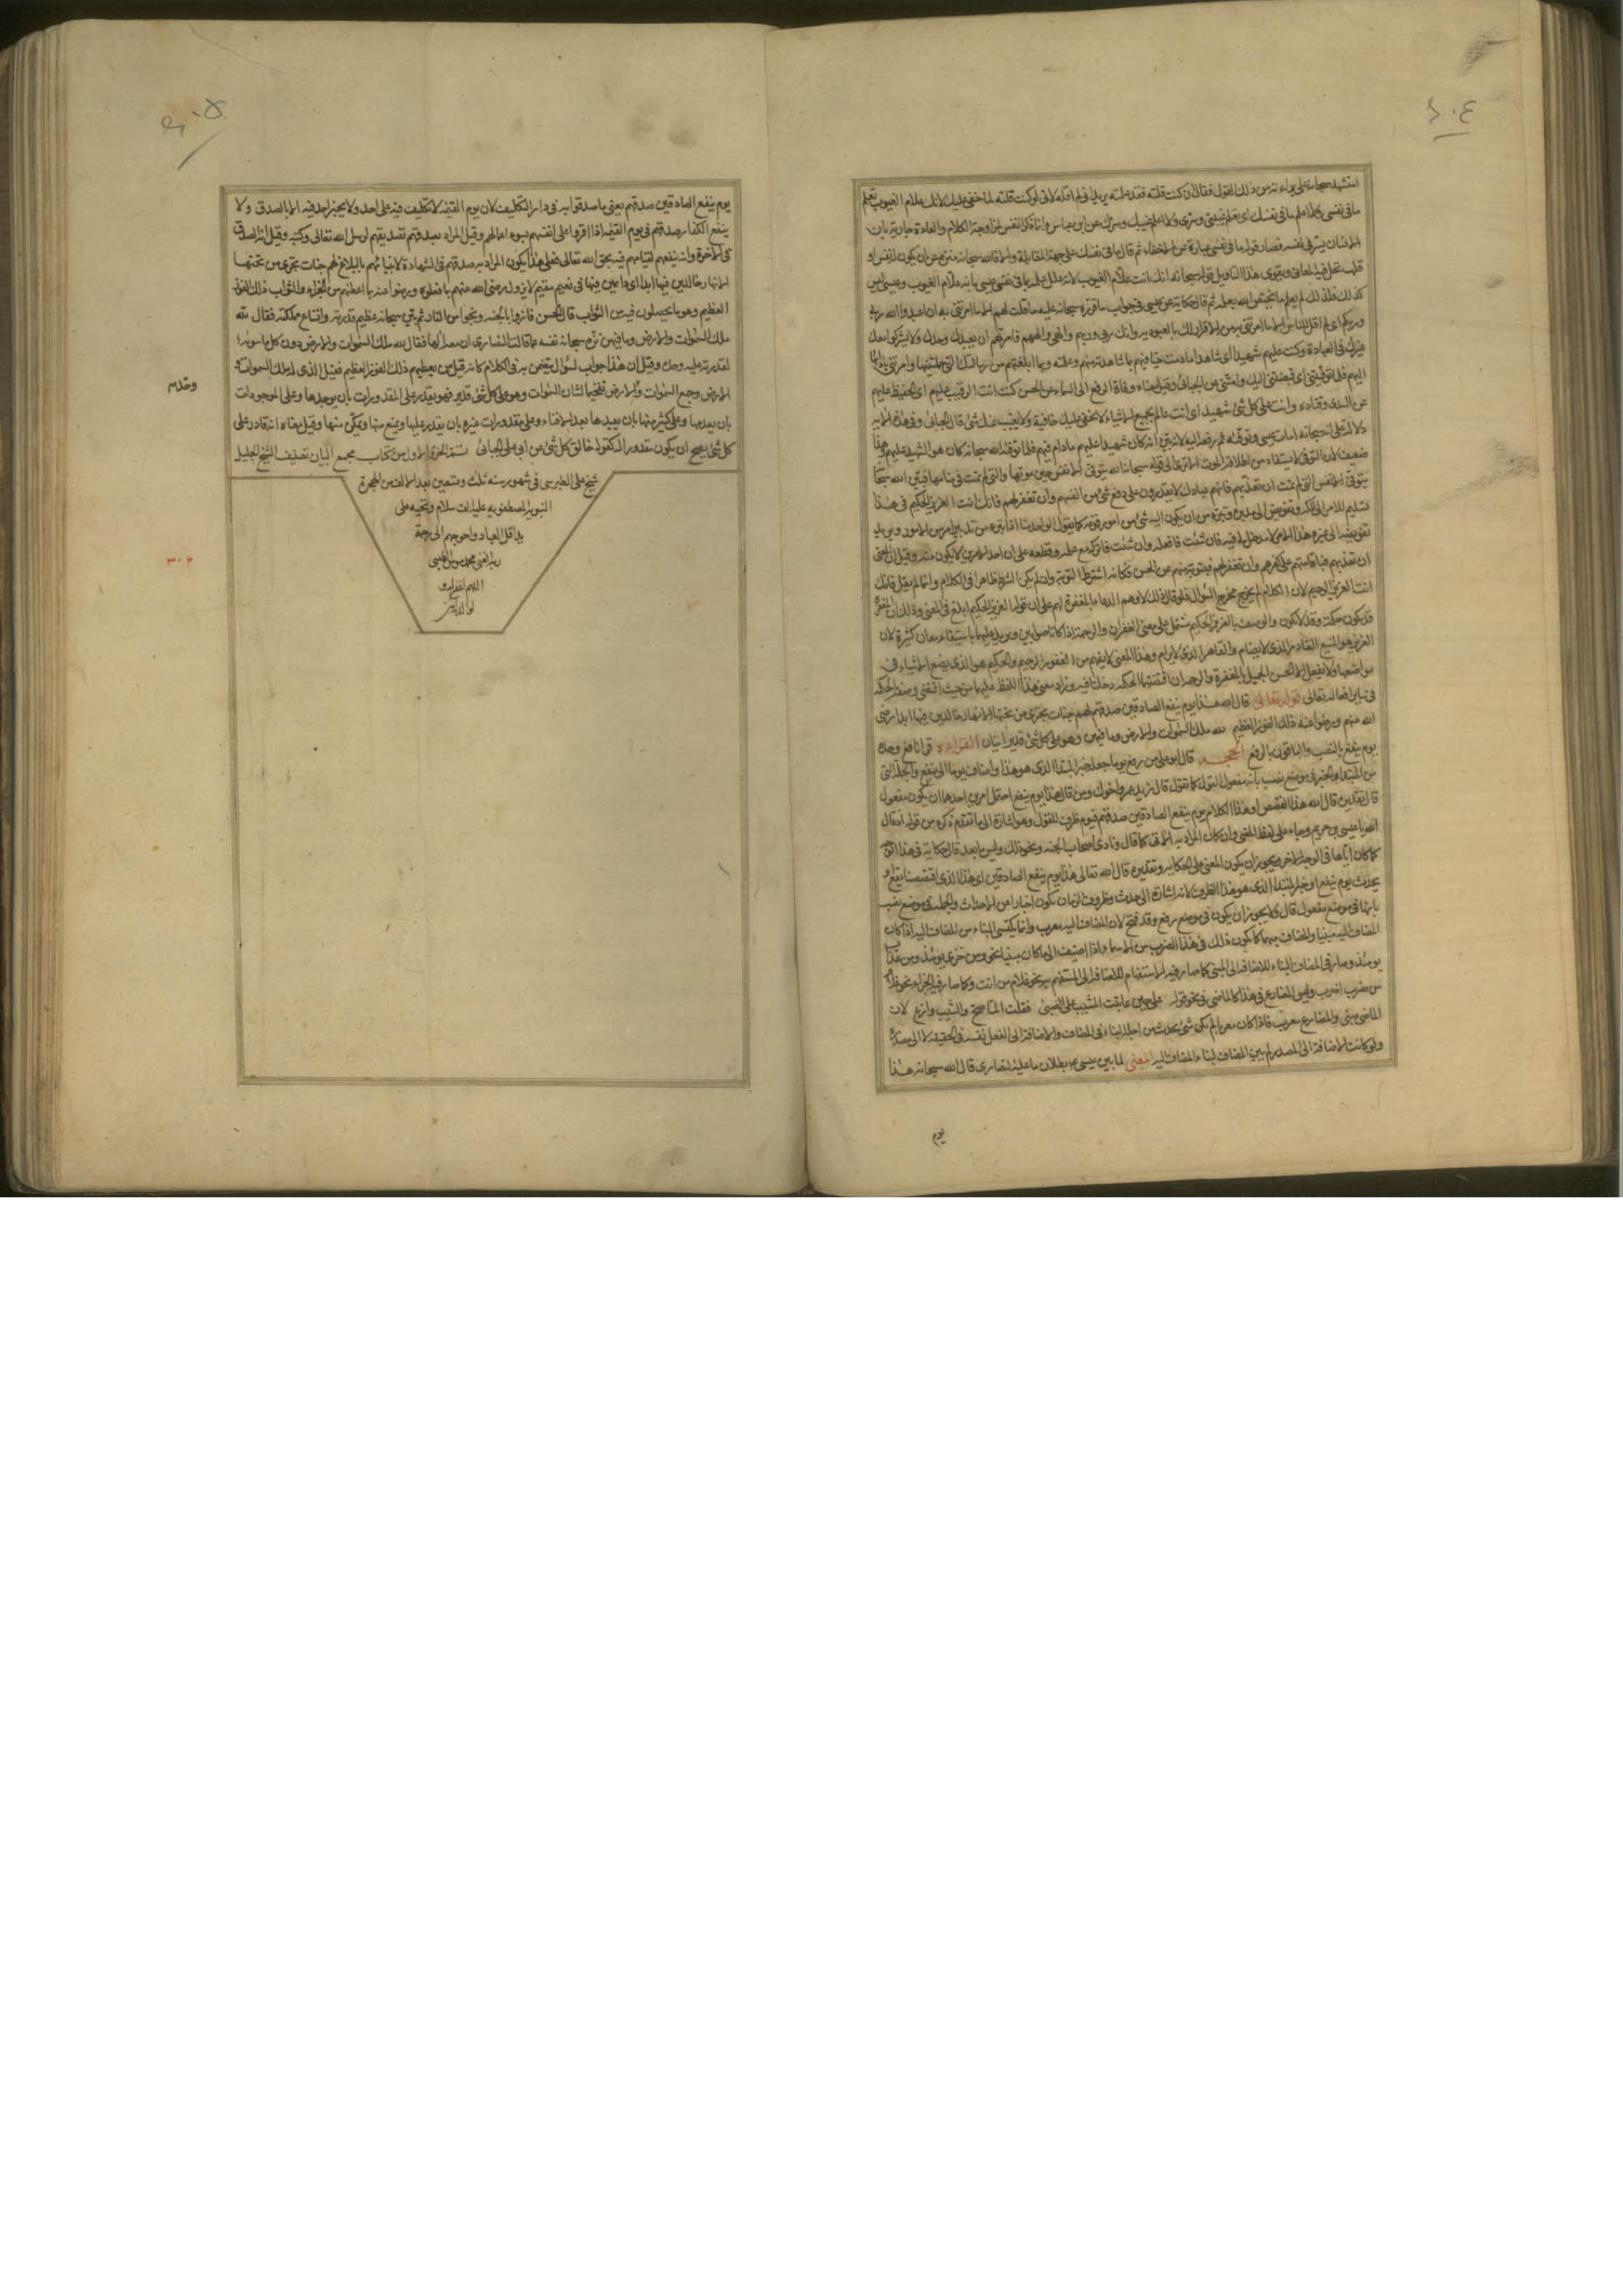 استشهد سبحانه على براءته من ذلك القول فقال ان كنت قلته فقد علمته يريد اني لم اقله لاني لو كنت قلته لما خفي عليك لانك علام الغيوب تعلم
ما في نفسي ولا اعلم ما في نفسك اي تعلم غيبي وسري ولا اعلم غيبك وسرك عن ابن عباس وانما ذكر النفس لمزاوجة الكلام والعادة جارية بان
الانسان يسر في نفسه فصار قوله ما في نفسي عبارة عن الاخفاء ثم قال ما في نفسك على جهة المقابلة والا فالله سبحانه منزه عن ان يكون له نفس او
قلب تحل فيه المعاني ويقوي هذا التاويل قوله سبحانه انك انت علام الغيوب لانه علل علمه بما في نفس عيسى بانه علام الغيوب وعيسى ليس
كذلك فلذلك لم يعلم ما يختص الله بعلمه ثم قال حكاية عن عيسى في جواب ما قرره سبحانه عليه ما قلت لهم الا ما امرتني به ان اعبدوا الله ربي
وربكم اي لم اقل للناس الا ما امرتني به من الاقرار لك بالعبودية وانك ربي وربهم والهي والههم فامرتهم ان يعبدوك وحدك ولا يشركوا معك
غيرك في العبادة وكنت عليهم شهيدا اي شاهدا ما دمت حيا فيهم بما شاهدته منهم وعلمته وبما ابلغتهم من رسالتك التي حملتنيها وامرتني بادائها
اليهم فلما توفيتني اي قبضتني اليك وامتني عن الجبائي وقيل معناه وفاة الرفع الى السماء عن الحسن كنت انت الرقيب عليهم اي الحفيظ عليهم
عن السدي وقتاده وانت على كل شئ شهيد اي انت عالم بجميع الاشياء لا تخفى عليك خافية ولا يغيب عنك شئ قال الجبائي وفي هذه الاية
دلالة على انه سبحانه امات عيسى وتوفاه ثم رفعه اليه لانه بين انه كان شهيدا عليهم ما دام فيهم فلما توفاه الله سبحانه كان هو الشهيد عليهم وهذا
ضعيف لان التوفي لا يستفاد من اطلاقه الموت الا ترى الى قوله سبحانه الله يتوفى الانفس حين موتها والتي لم تمت في منامها فبين الله سبحانه
يتوفى الانفس التي لم تمت ان تعذبهم فانهم عبادك لا يقدرون على دفع شئ من انفسهم وان تغفر لهم فانك انت العزيز الحكيم في هذا
تسليم الامر الى مالكه وتفويض الى مدبره وتبرء من ان يكون اليه شئ من امور قومه كما يقول الواحد منا اذا تبرء من تدبير امر من الامور ويريد
تفويضه الى غيره هذا الامر لا مدخل لي فيه فان شئت فافعله وان شئت فاتركه مع علمه وقطعه على ان احد الامرين لا يكون منه وقيل ان المعنى
ان تعذبهم فباقامتهم على كفرهم وان تغفر لهم فبتوبة منهم عن الحسن فكانه اشترط التوبة وان لم يكن الشرط ظاهرا في الكلام وانما لم يقل فانك
انت الغفور الرحيم لان الكلام لم يخرج مخرج السؤال فلو قال ذلك لاوهم الدعاء بالمغفرة لهم على ان قوله العزيز الحكيم ابلغ في المعنى وذلك ان المغفرة
قد يكون حكمة وقد لا يكون والوصف بالعزيز الحكيم مشتمل على معنى الغفران والرحمة اذا كانا صوابين ويزيد عليهما باستيفاء معان كثيرة لان
العزيز هو المنيع القادر الذي لا يضام والقاهر الذي لا يرام وهذا المعنى لا يفهم من الغفور الرحيم والحكيم هو الذي يضع الاشياء في
مواضعها ولا يفعل الا الحسن الجميل فالمغفرة والرحمة ان اقتضتهما الحكمه دخلتا فيه وزاد معنى هذا اللفظ عليهما من حيث اقتضى وصفه بالحكمه
في ساير افعاله تعالى قوله تعالى قال الله هذا يوم ينفع الصادقين صدقهم لهم جنات تجري من تحتها الانهار خالدين فيها ابدا رضي
الله عنهم ورضوا عنه ذلك الفوز العظيم لله ملك السموات والارض وما فيهن وهو على كل شئ قدير ايتان القراءه قرا نافع وحده
يوم ينفع بالنصب والباقون بالرفع الحجه قال ابو علي من رفع يوما جعله خبر المبتدا الذي هو هذا واضاف يوما الى ينفع والجملة التي
من المبتدا والخبر في موضع نصب بانه مفعول القول كما تقول قال زيد عمرو اخوك ومن قال هذا يوم ينفع احتمل امرين احدهما ان يكون مفعول
قال تقديره قال الله هذا القصص او هذا الكلام يوم ينفع الصادقين صدقهم فيوم ظرف للقول وهو اشارة الى ما تقدم ذكره من قوله اذ قال
الله يا عيسى بن مريم وجاء على لفظ المضي وان كان المراد به الاتي كما قال ونادى اصحاب الجنه ونحو ذلك وليس ما بعد قال حكاية في هذا الوجه
كما كان اياها في الوجه الاخر ويجوز ان يكون المعنى على الحكايه وتقديره قال الله تعالى هذا يوم ينفع الصادقين اي هذا الذي اقتصصنا يقع او
يحدث يوم ينفع او خبر المبتدا الذي هو هذا الظرف لانه اشارة الى حدث وظروف الزمان تكون اخبارا عن الاحداث والجملة في موضع نصب
بانها في موضع مفعول قال ولا يجوز ان يكون في موضع رفع وقد فتح لان المضاف اليه معرب وانما يكتسي البناء من المضاف اليه اذا كان
المضاف اليه مبنيا والمضاف مبهما كما يكون ذلك في هذا الضرب من الاسماء اذا اضيفت الى ما كان مبنيا نحو ومن خزي يومئذ ومن عذاب
يومئذ وصار في المضاف البناء للاضافه الى المبني كما صار فيه الاستفهام للاضافه الى المستفهم به نحو غلام من انت وكما صار فيه الجزاء نحو غلام
من تضرب اضرب وليس المضارع في هذا كالماضي في نحو قوله على حين عاتبت المشيب على الصبى فقلت الما اصح والشيب وازع لان
الماضي مبني والمضارع معرب فاذا كان معربا لم يكن شئ يحدث من اجله البناء في المضاف والاضافة الى الفعل نفسه في الحقيقة لا الى مصدره
ولو كانت الاضافة الى المصدر لم يبن المضاف لبناء المضاف اليه المعنى لما بين عيسى ع بطلان ما عليه النصارى قال الله سبحانه هذا
يوم
يوم ينفع الصادقين صدقهم يعني ما صدقوا به في دار التكليف لان يوم القيمه لا تكليف فيه على احد ولا يخبر احد فيه الا بالصدق ولا
ينفع الكفار صدقهم في يوم القيمه اذا اقروا على انفسهم بسوء اعمالهم وقيل المراد بصدقهم تصديقهم لرسل الله تعالى وكتبه وقيل انه الصدق
في الاخرة وانه ينفعهم لقيامهم فيه بحق الله تعالى فعلى هذا يكون المراد به صدقهم في الشهادة لانبيائهم بالبلاغ لهم جنات تجري من تحتها
الانهار خالدين فيها ابدا اي دائمين فيها في نعيم مقيم لا يزول رضي الله عنهم بما فعلوه ورضوا عنه بما اعطاهم من الجزاء والثواب ذلك الفوز
العظيم وهو ما يحصلون فيه من الثواب قال الحسن فازوا بالجنه ونجوا من النار ثم بين سبحانه عظيم قدرته واتساع مملكته فقال لله
ملك السموات والارض وما فيهن نزه سبحانه نفسه عما قالت النصارى ان معه الها فقال لله ملك السموات والارض دون كل ما سواه
لقدرته عليه وحده وقيل ان هذا جواب لسؤال يتضمن به في الكلام كانه قيل من يعطيهم ذلك الفوز العظيم فقيل الذي له ملك السموات و
الارض وجمع السموات والارض تفخيما لشان السموات وهو على كل شئ قدير فهو يقدر على المقدورات بان يوجدها وعلى الموجودات
بان يعدمها وعلى كثير منها بان يعيدها بعد الافناء وعلى مقدورات غيره بان يقدر عليها ويمنع منها ويمكن منها وقيل معناه انه قادر على
كل شئ يصح ان يكون مقدورا له كقوله خالق كل شئ عن ابي علي الجبائي تم الجزء الاول من كتاب مجمع البيان تصنيف الشيخ الجليل
شيخ علي الطبرسي في شهور سنه ثلث وتسعين بعد الالف من الهجرة
النبويه المصطفويه عليه الف سلام وتحيه على
يد اقل العباد واحوجهم الى رحمة
ربه الغني محمد
اللهم اغفر له و
لوالديه
٣٠٢